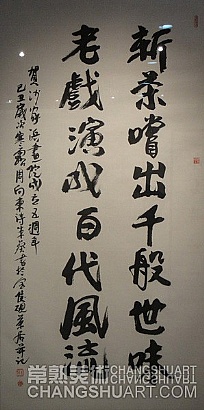 新茶嚐出千般世味
老戲演成百代風流
賀沙家浜畫院成立五週年
己丑歲次寒露月向東詩朱葵書於
常熟美術 CHANGSHUART
CHANGSHUART.COM